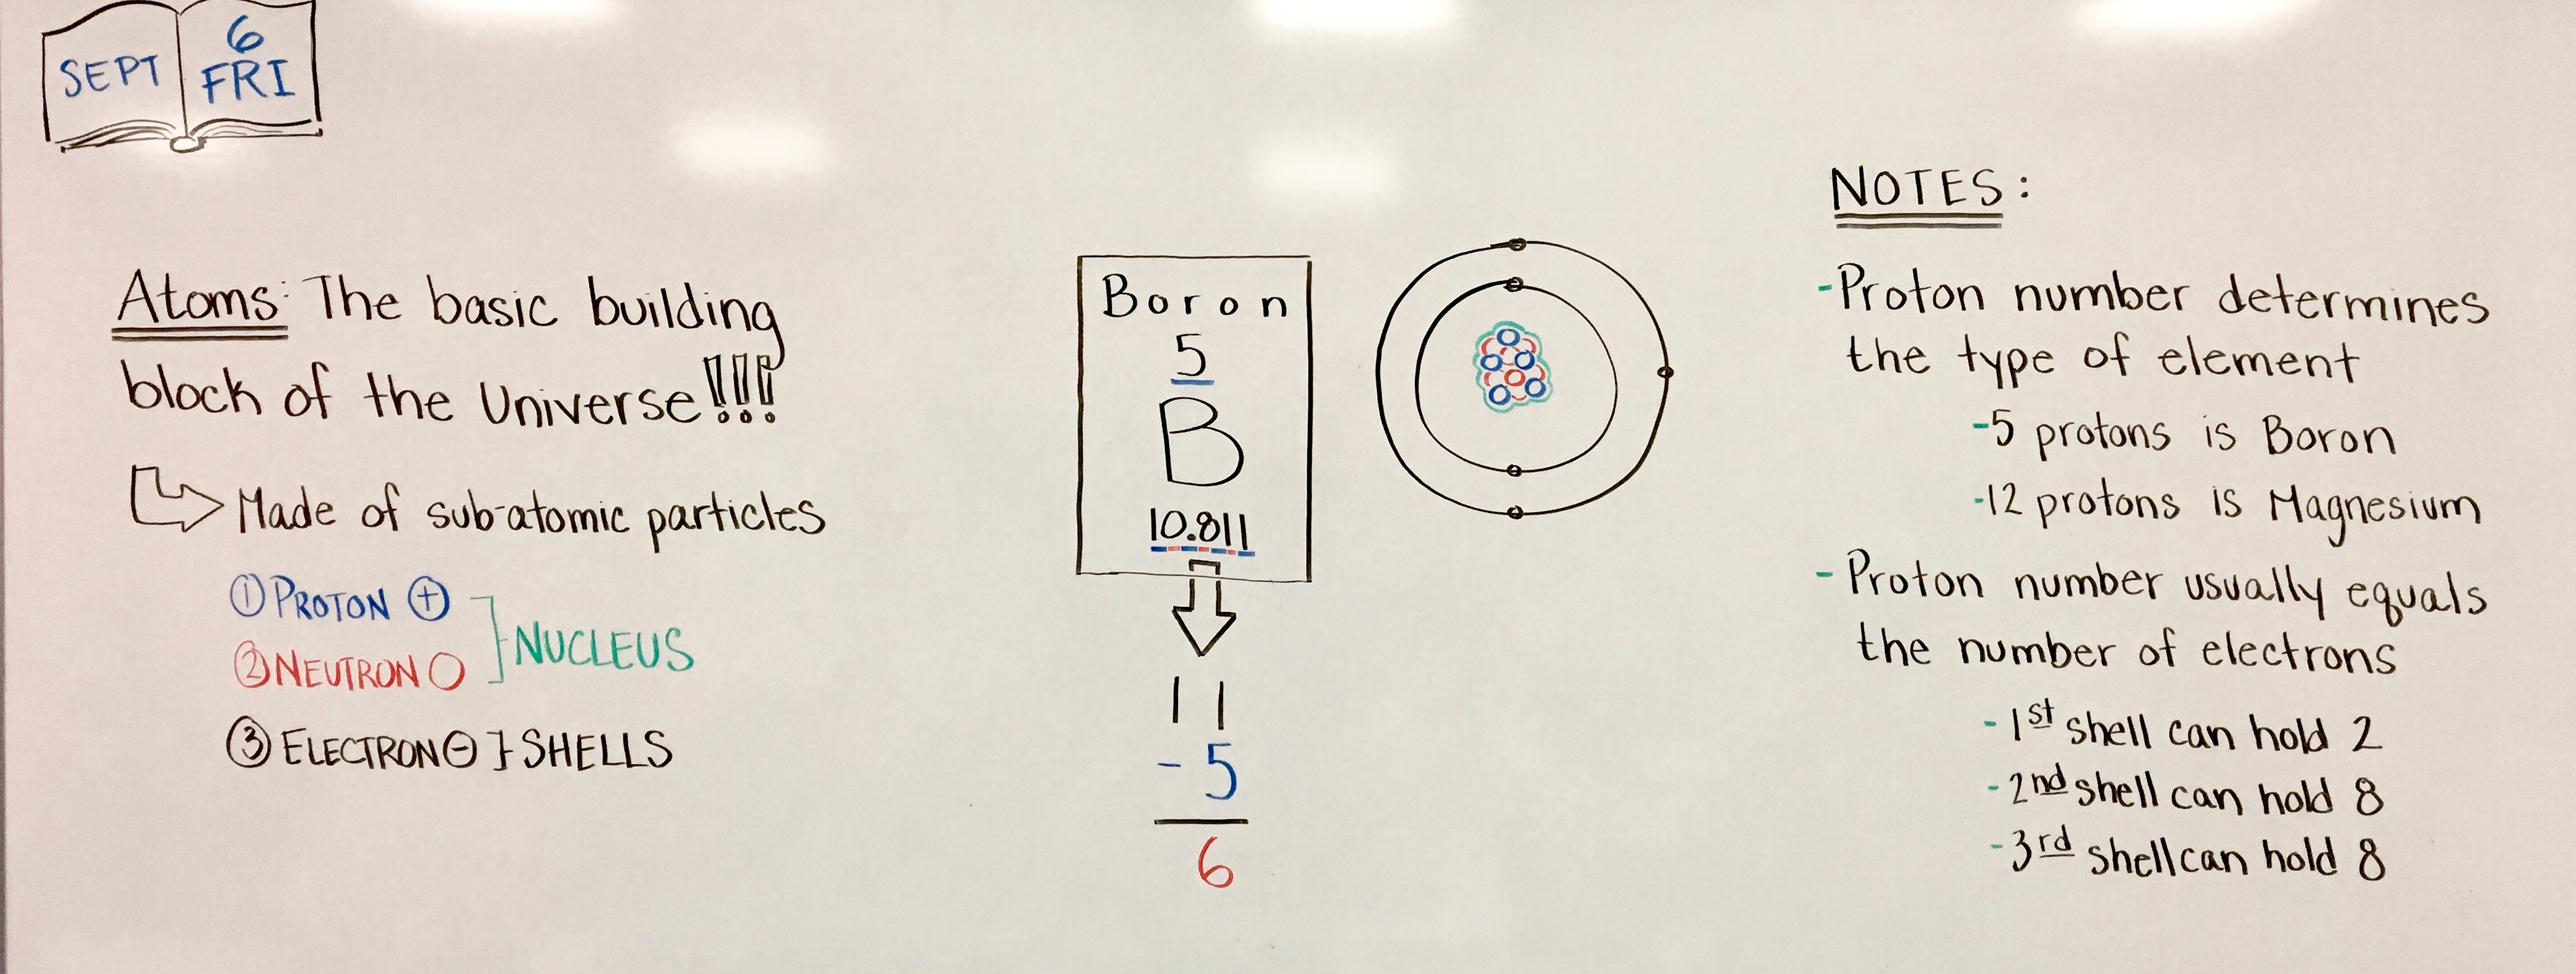 SEPT
6
FRI
Atoms: The basic building
block of the Universe!!!
Made of sub-atomic particles
① PROTON ⊕
② NEUTRON ○
NUCLEUS
③ ELECTRON ⊖ } SHELLS
Boron
5
B
10.811
11
- 5
6
NOTES:
- Proton number determines
the type of element
- 5 protons is Boron
- 12 protons is Magnesium
- Proton number usually equals
the number of electrons
- 1st shell can hold 2
- 2nd shell can hold 8
- 3rd shell can hold 8